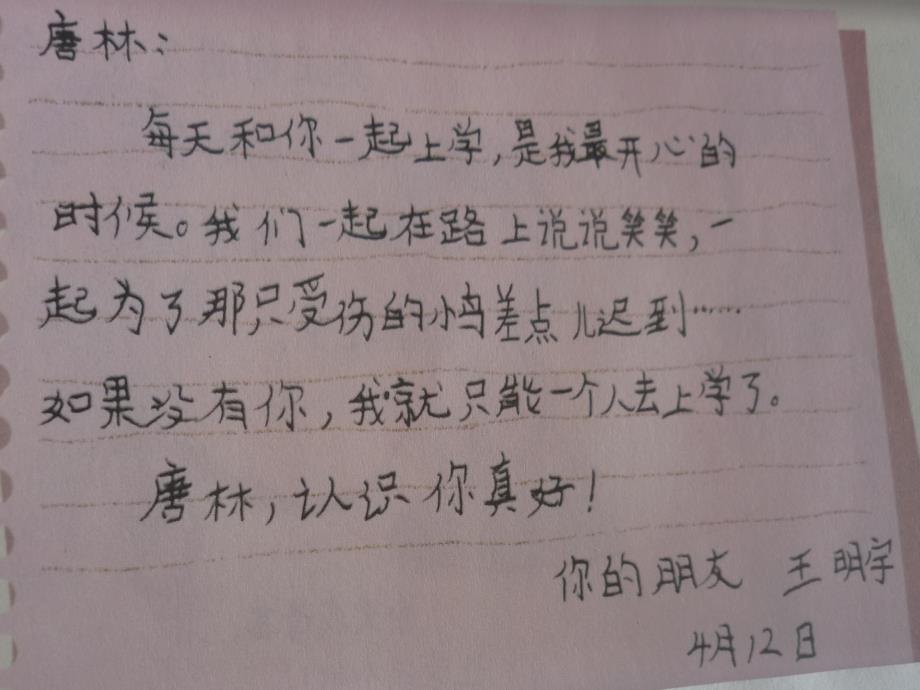 唐林：
每天和你一起上学，是我最开心的
时候。我们一起在路上说说笑笑，一
起为了那只受伤的小鸟差点儿迟到……
如果没有你，我就只能一个人去上学了。
唐林，认识你真好！
你的朋友 王明宇
4月12日